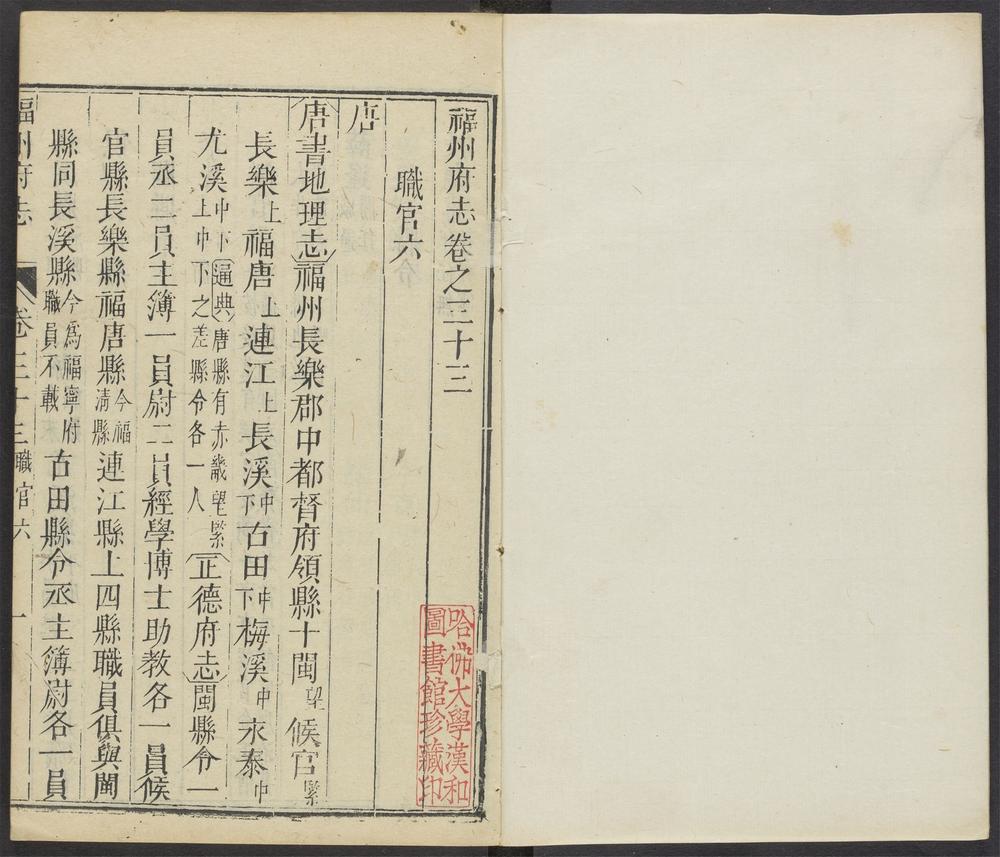 福州府志卷之三十三
職官六
唐
唐書地理志福州長樂郡中都督府領縣十閩望候官緊
長樂上福唐上連江上長溪中下古田中下梅溪中永泰中
尤溪中下通典唐縣有赤畿望緊上中下之差縣令各一人正德府志閩縣令一
員丞二員主簿一員尉二員經學博士助教各一員候
官縣長樂縣福唐縣今福清縣連江縣上四縣職員俱與閩
縣同長溪縣今爲福寧府職員不載古田縣令丞主簿尉各一員
福州府志 卷三十三 職官六 一
哈佛大學漢和圖書館珍藏印